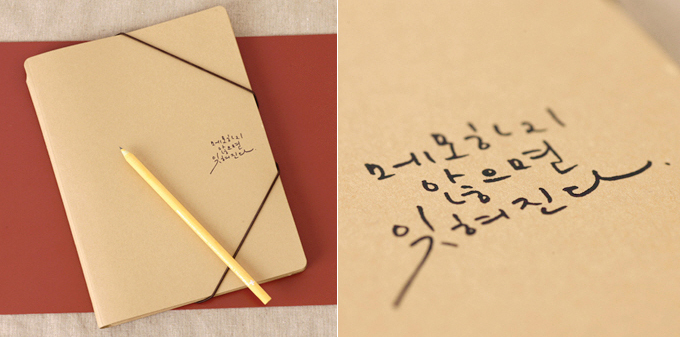 메모하지
않으면
잊혀진다.
메모하지
않으면
잊혀진다.